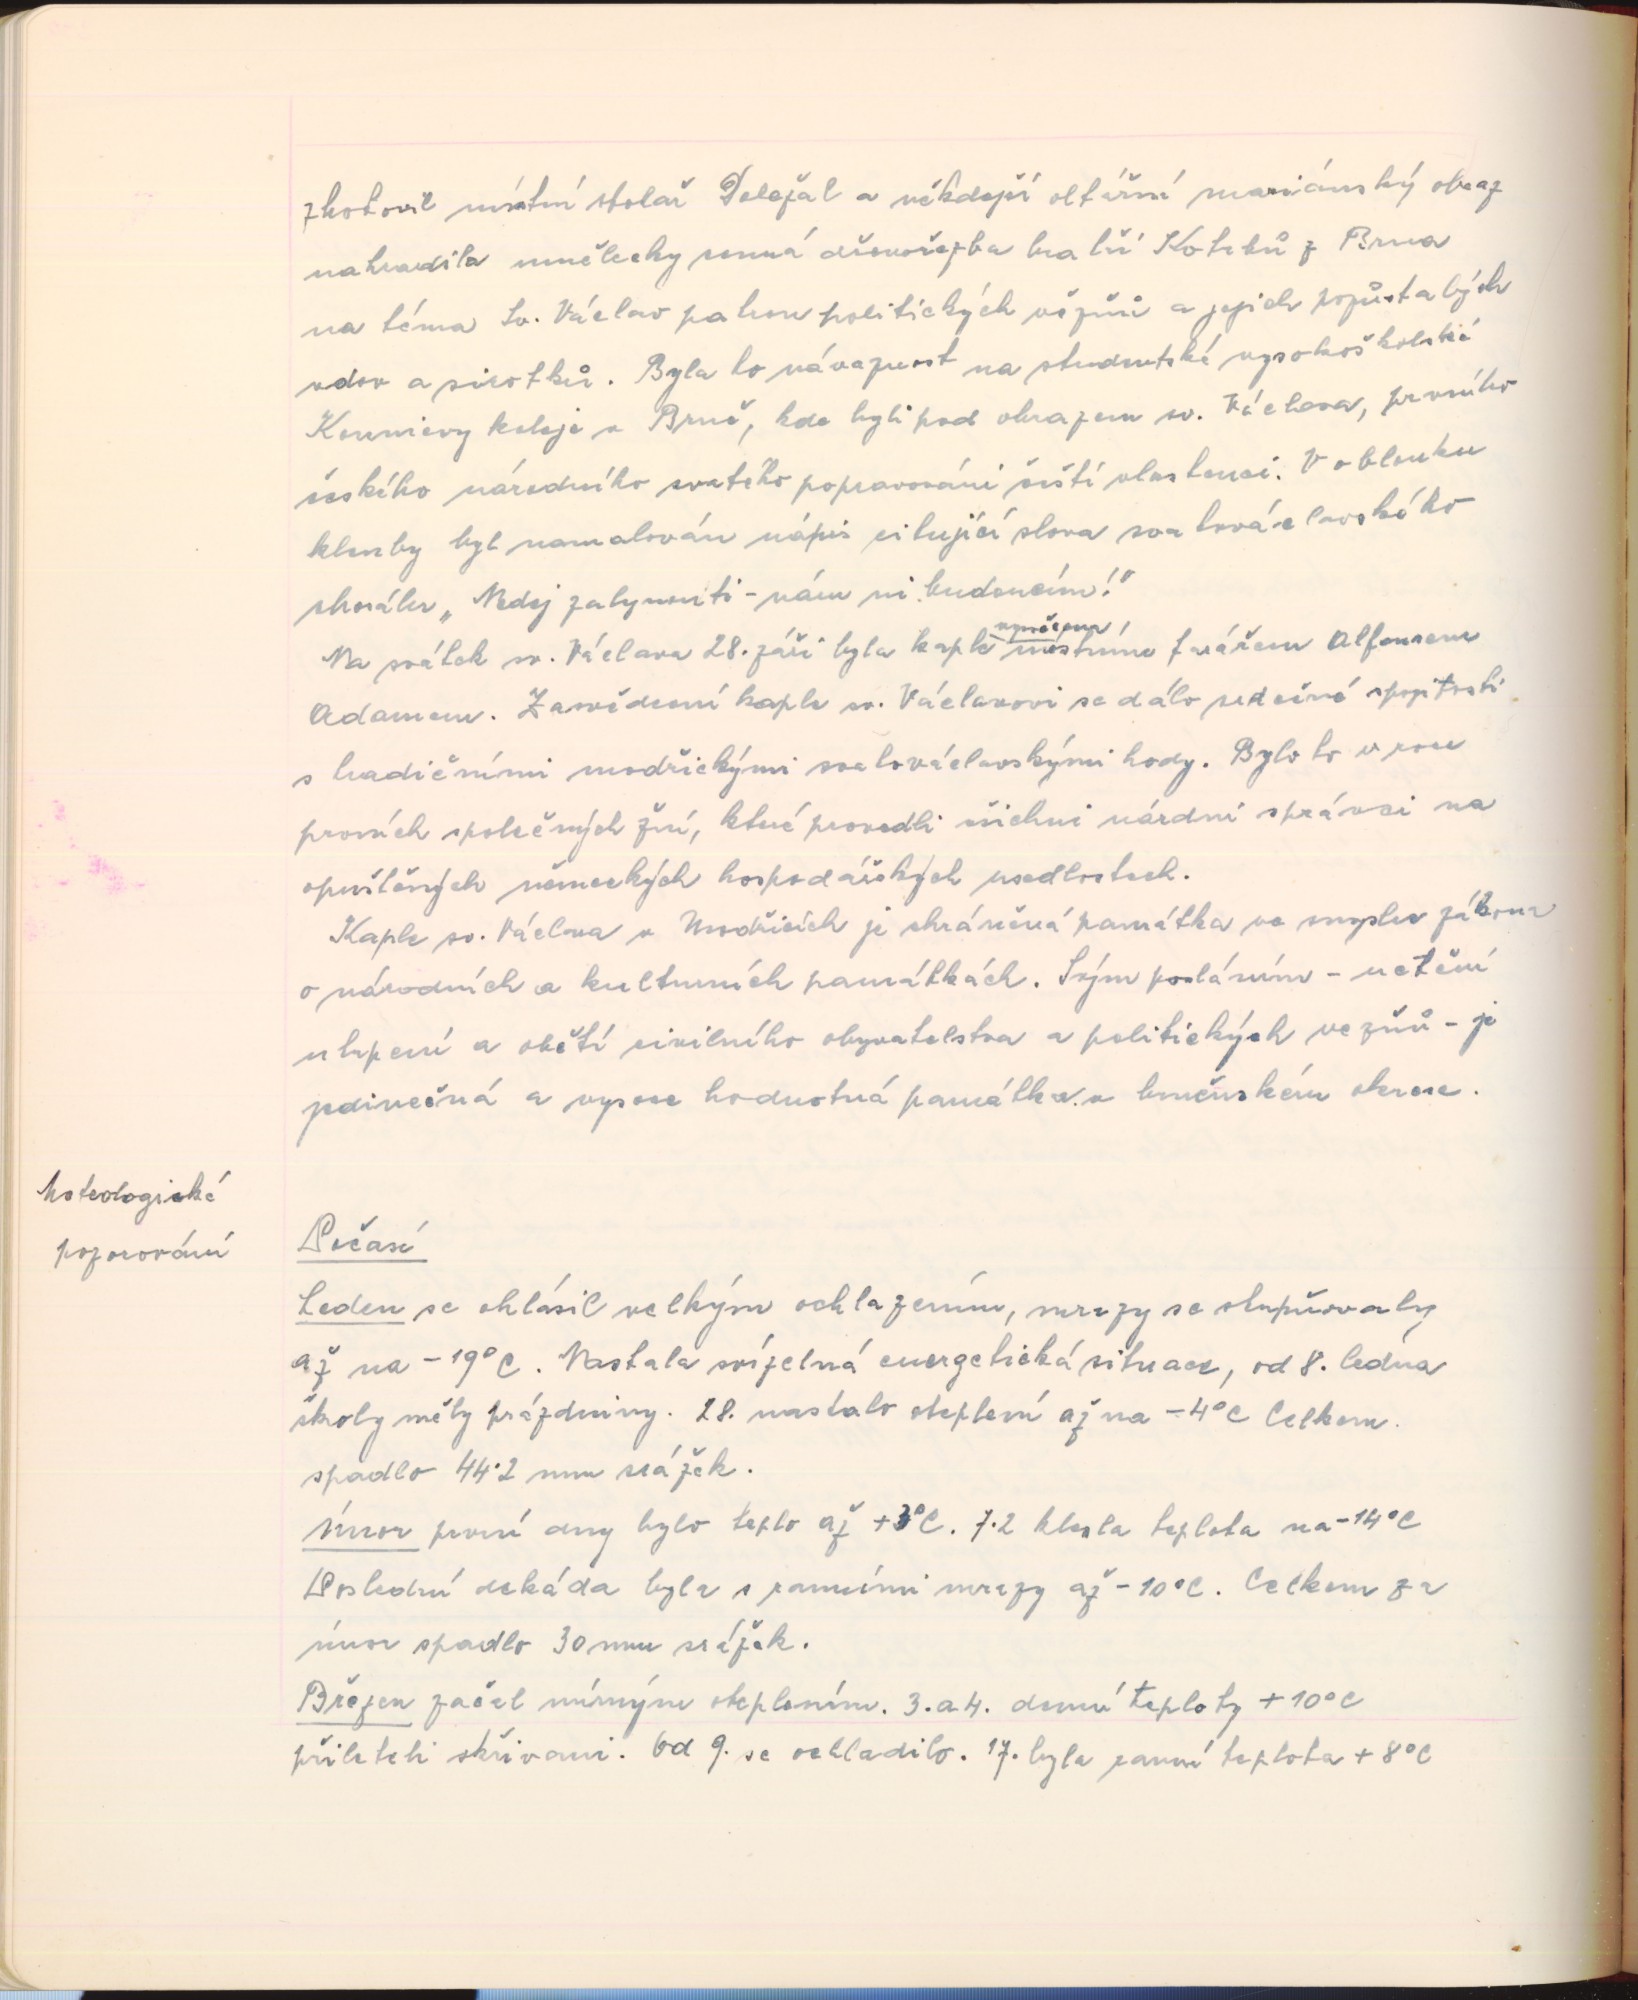 zhotovil místní stolař Doležal a někdejší oltářní mariánský obraz
nahradila umělecky cenná dřevořezba bratří Kotrbů z Brna
na téma Sv. Václav patron politických vězňů a jejich pozůstalých
vdov a sirotků. Byla to návaznost na studentské vysokoškolské
Kounicovy koleje v Brně, kde byli pod obrazem sv. Václava, prvního
českého národního svatého popravováni čeští vlastenci. V oblouku
klenby byl namalován nápis citující slova svatováclavského
chorálu „Nedej zahynouti - nám ni budoucím!"
Na svátek sv. Václava 28. září byla kaple vysvěcena místním farářem Alfonsem
Adamem. Zasvěcení kaple sv. Václavovi se dálo v srdečné spojitosti
s tradičními modřickými svatováclavskými hody. Bylo to v roce
prvních společných žní, které provedli všichni národní správci na
opuštěných německých hospodářských usedlostech.
Kaple sv. Václava v Modřicích je chráněná památka ve smyslu zákona
o národních a kulturních památkách. Svým posláním - uctění
utrpení a obětí civilního obyvatelstva a politických vezňů - je
jedinečná a vysoce hodnotná památka v brněnském okrese.
Meteologické
pozorování
Počasí
Leden se ohlásil velkým ochlazením, mrazy se stupňovaly
až na -19°C. Nastala svízelná energetická situace, od 8. ledna
školy měly prázdniny. 28. nastalo oteplení až na -4°C Celkem
spadlo 44.2 mm srážek.
Únor první dny bylo teplo až +3°C. 7.2 klesla teplota na -14°C
Poslední dekáda byla s ranními mrazy až -10°C. Celkem za
únor spadlo 30 mm srážek.
Březen začal mírným oteplením. 3. a 4. denní teploty +10°C
přiletěli skřivani. Od 9. se ochladilo. 17. byla ranní teplota +8°C